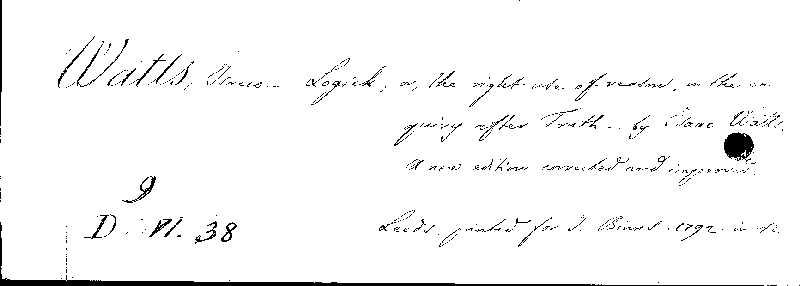 Watts, Isaac. Logick; or, the right use of reason, in the en
quiry after Truth.. by Isaac Watts.
A new edition corrected and improved.
9
D. VI. 38
Leeds, printed for J. Binns. 1792. in 12.